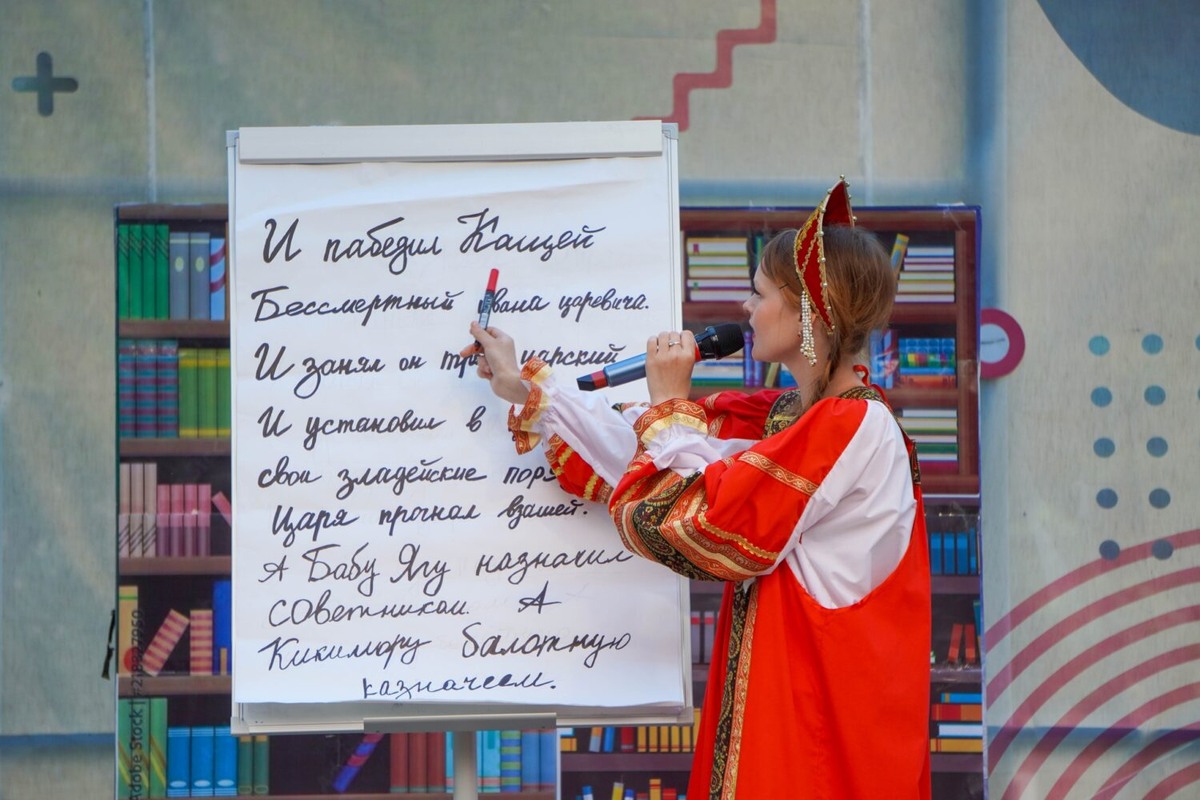 И пабедил Кащей
Бессмертный вана царевича.
И занял он царский
И установил в
свои зладейские
Царя прогнал взашей.
А Бабу Ягу назначил
советником. А
Кикимору балотную
казначеем.